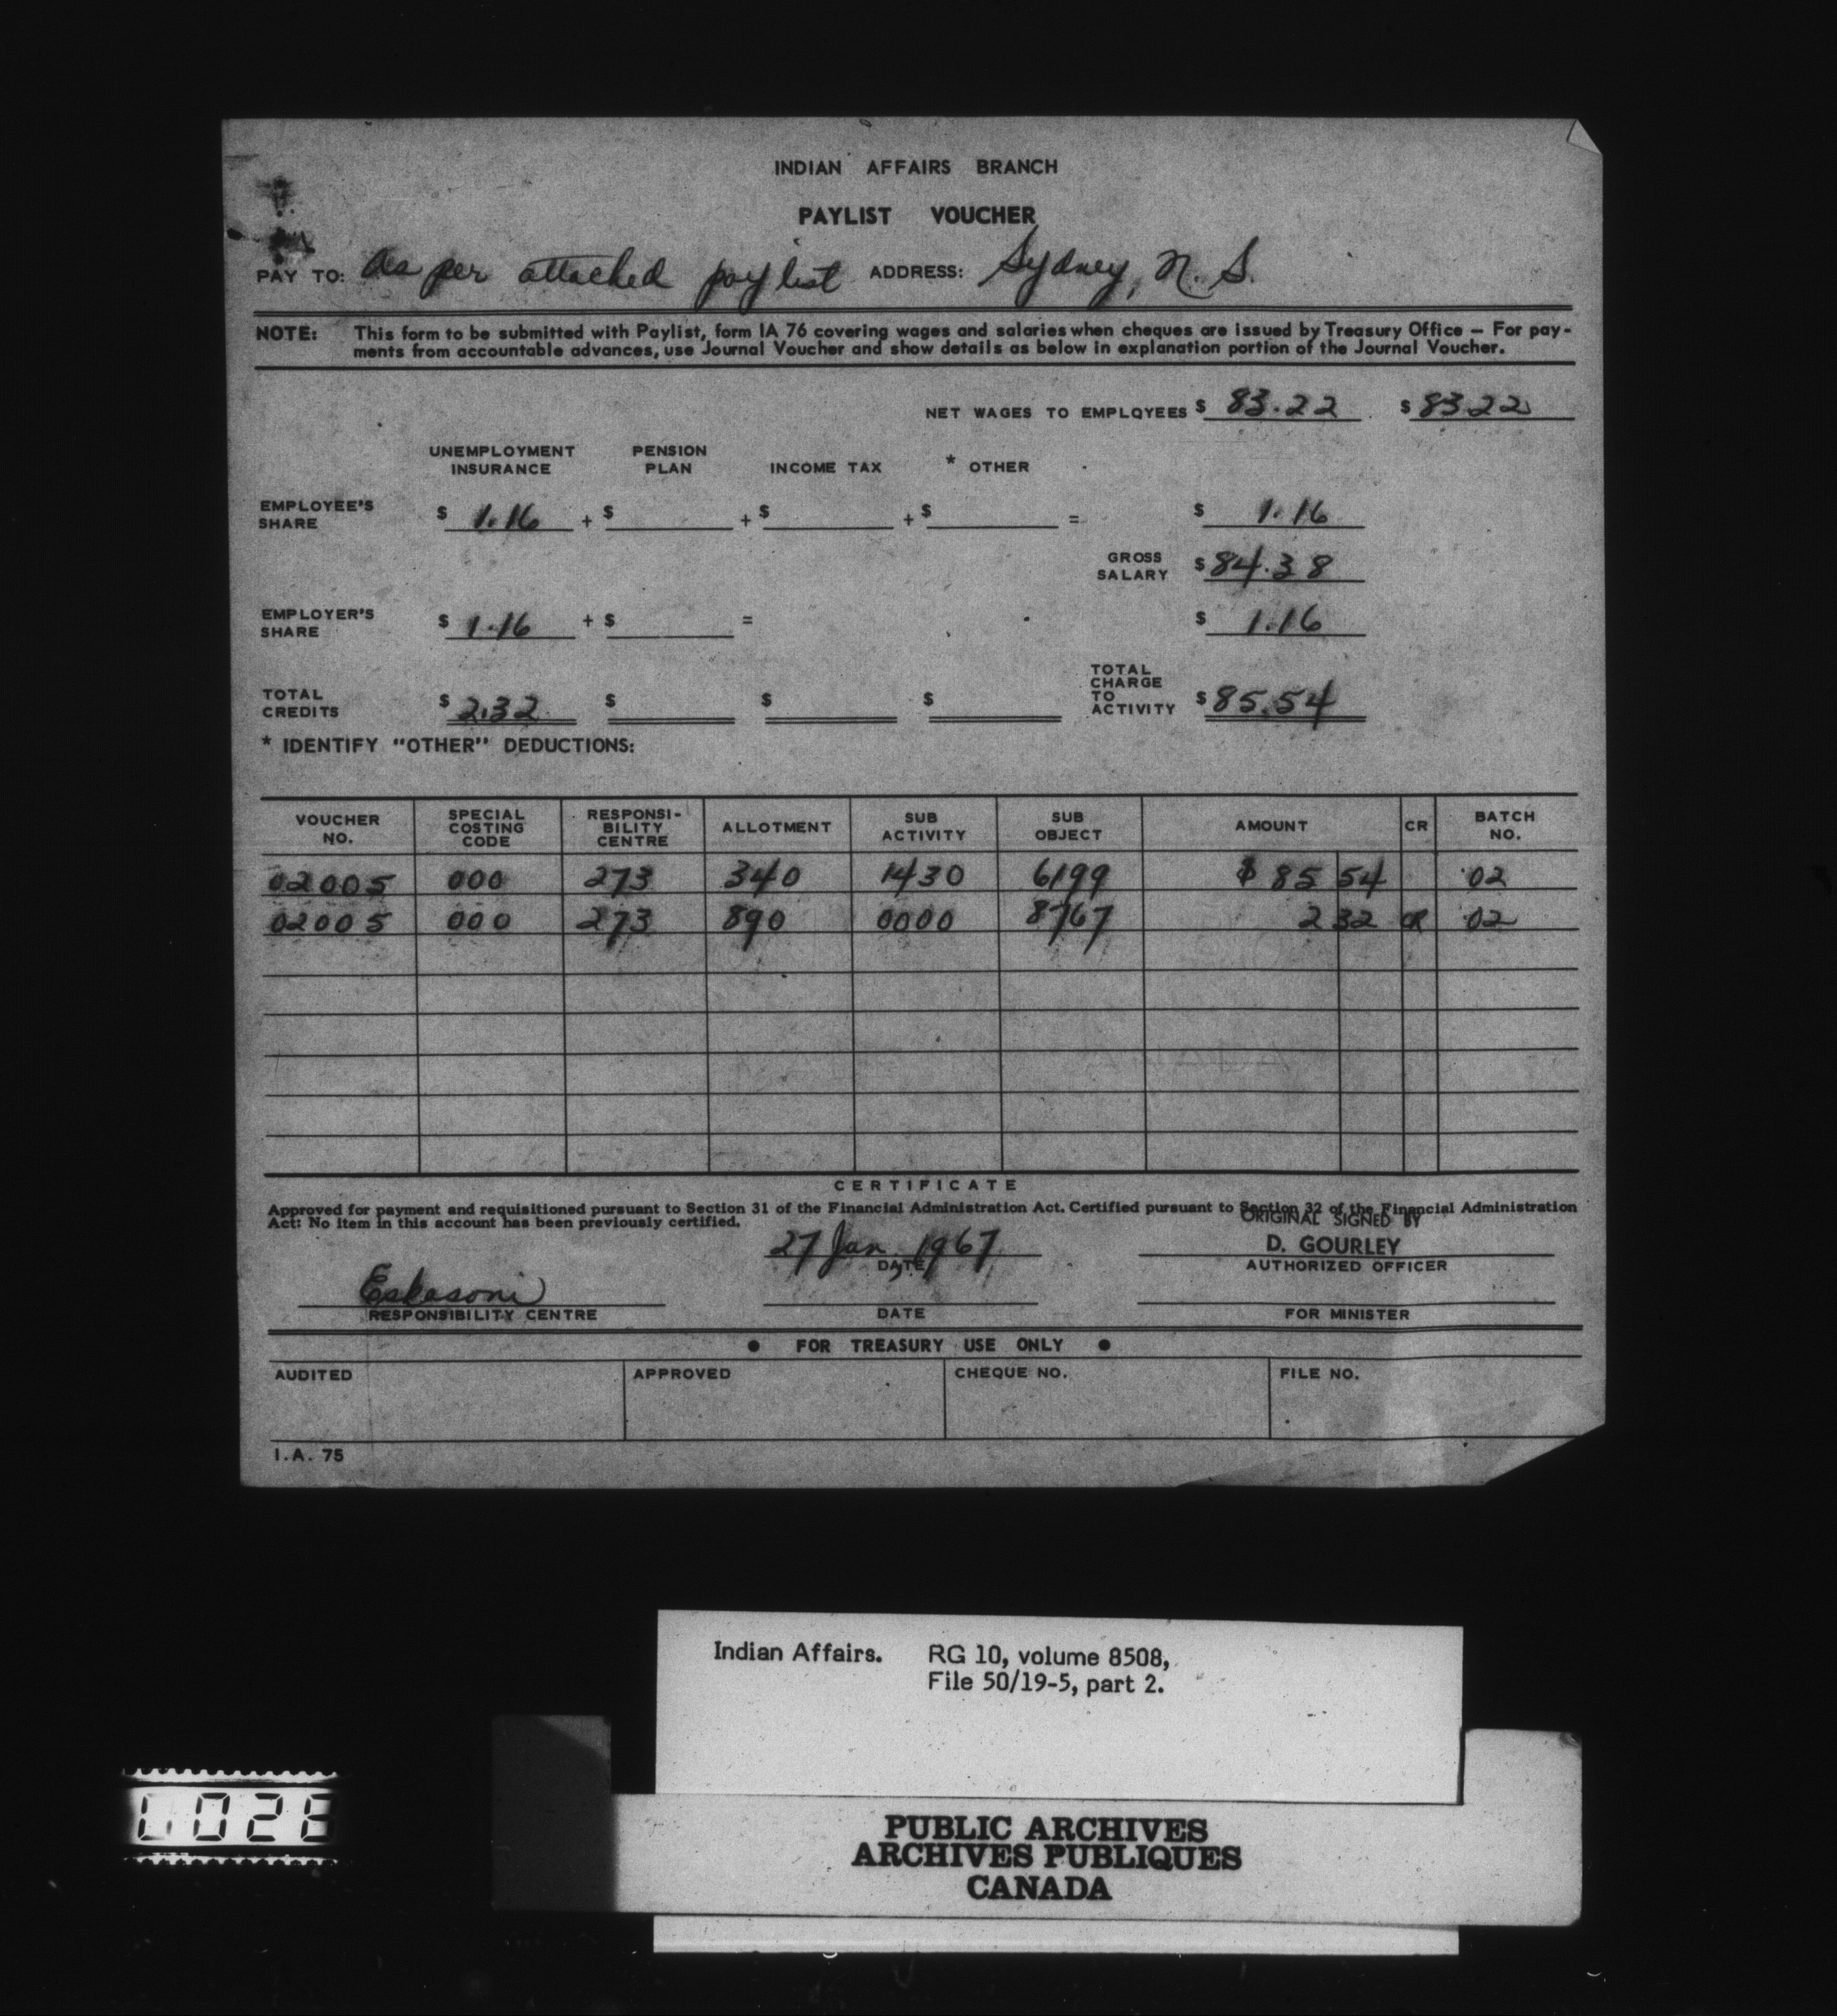 INDIAN AFFAIRS BRANCH
PAYLIST VOUCHER
PAY TO: As per attached paylist ADDRESS: Sydney, N. S.
NOTE: This form to be submitted with Paylist, form IA 76 covering wages and salaries when cheques are issued by Treasury Office — For pay-
ments from accountable advances, use Journal Voucher and show details as below in explanation portion of the Journal Voucher.
NET WAGES TO EMPLOYEES $ 83.22 $ 83.22
UNEMPLOYMENT INSURANCE PENSION PLAN INCOME TAX * OTHER
EMPLOYEE'S SHARE $ 1.16 + $ + $ + $ = $ 1.16
GROSS SALARY $ 84.38
EMPLOYER'S SHARE $ 1.16 + $ = $ 1.16
TOTAL CREDITS $ 2.32 $ $ $ TOTAL CHARGE TO ACTIVITY $ 85.54
* IDENTIFY "OTHER" DEDUCTIONS:
VOUCHER NO. SPECIAL COSTING CODE RESPONSI-BILITY CENTRE ALLOTMENT SUB ACTIVITY SUB OBJECT AMOUNT CR BATCH NO.
02005 000 273 340 1430 6199 $ 85 54 02
02005 000 273 890 0000 8767 2 32 CR 02
CERTIFICATE
Approved for payment and requisitioned pursuant to Section 31 of the Financial Administration Act. Certified pursuant to Section 32 of the Financial Administration
Act: No item in this account has been previously certified.
ORIGINAL SIGNED BY
27 Jan, 1967 D. GOURLEY
DATE AUTHORIZED OFFICER
Eskasoni
RESPONSIBILITY CENTRE DATE FOR MINISTER
● FOR TREASURY USE ONLY ●
AUDITED APPROVED CHEQUE NO. FILE NO.
I.A. 75
Indian Affairs. RG 10, volume 8508,
File 50/19-5, part 2.
PUBLIC ARCHIVES
ARCHIVES PUBLIQUES
CANADA